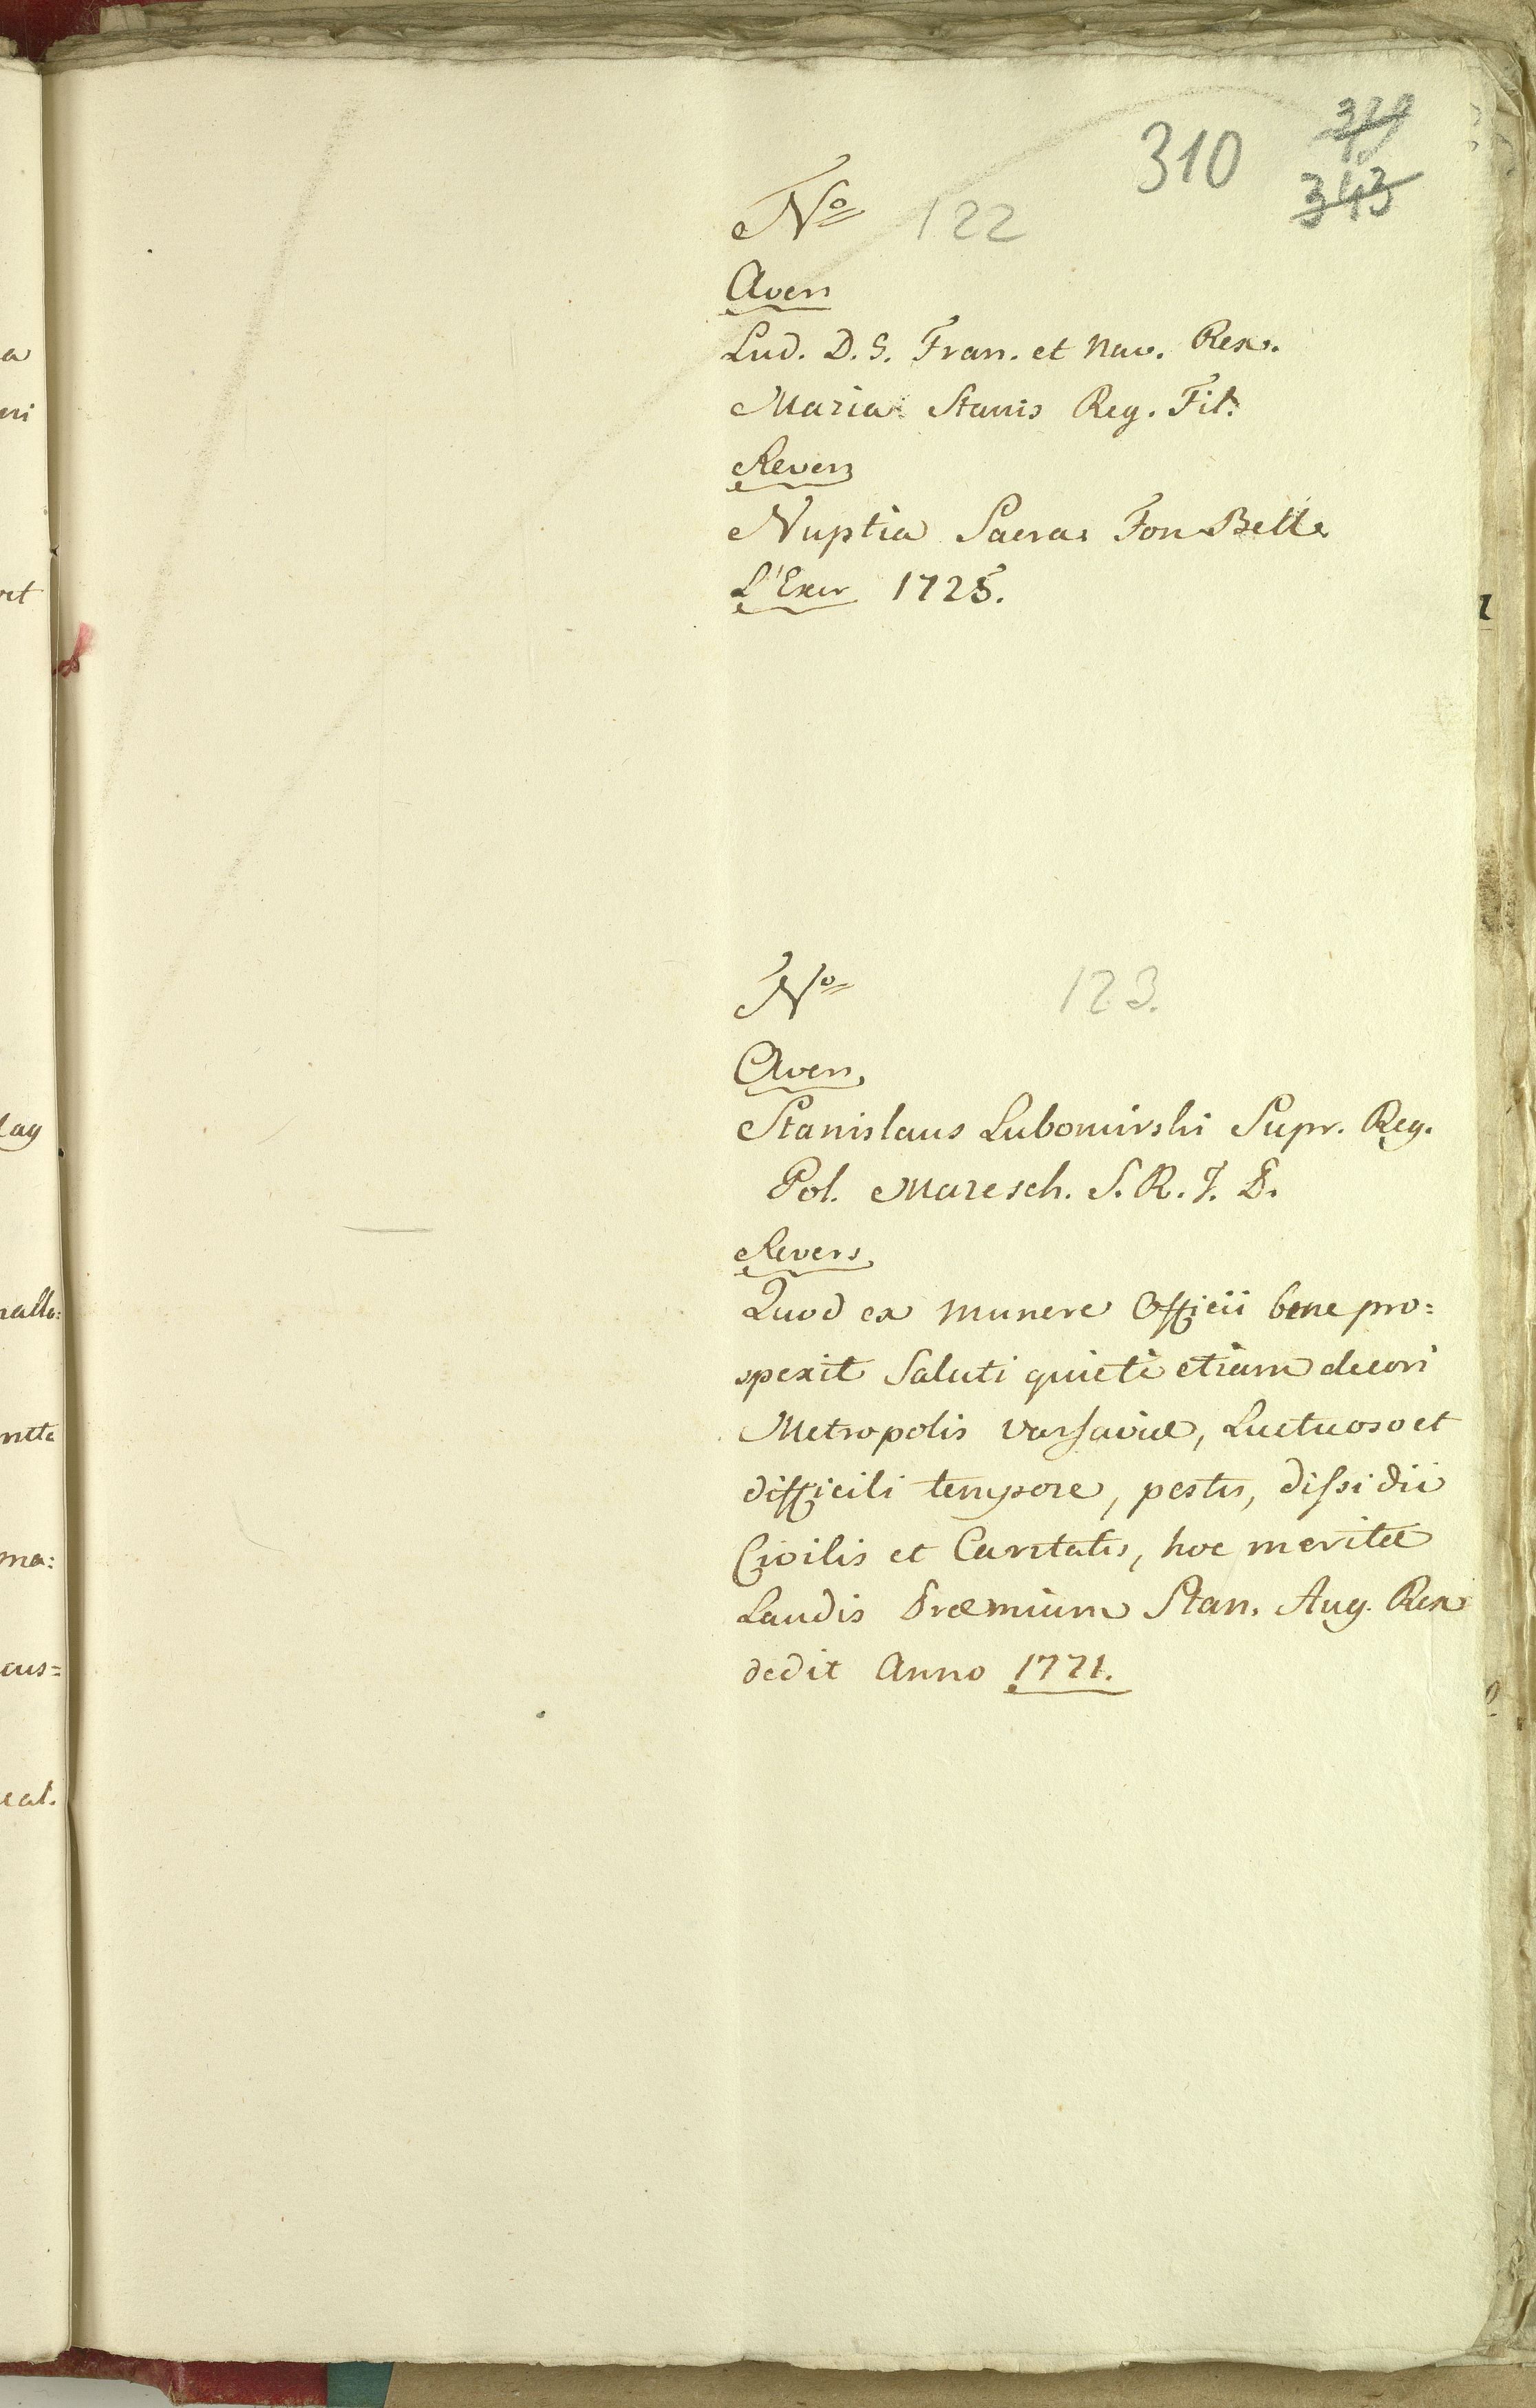 310
343
No 122
Avers
Lud. D. G. Fran. et Nav. Rex.
Maria Stanis Reg. Fil.
Revers
Nuptia Sacra Fon Belle
L'Exer 1725.
No 123.
Avers
Stanislaus Lubomirski Supr. Reg.
Pol. Maresch. S. R. J. P.
Revers
Quod ex munere Officii bene pro:
spexit Saluti quieti etiam decori
Metropolis varsaviæ, Luctuoso et
difficili tempore, pestis, dissidii
Civilis et Caritatis, hoc meritæ
Laudis Præmium Stan. Aug. Rex
dedit Anno 1771.